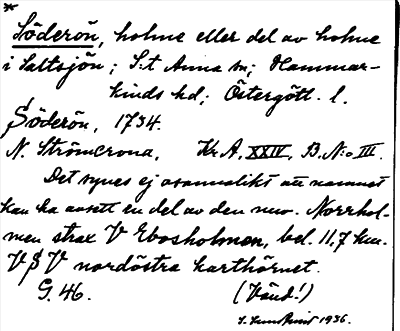 *
Söderön, holme eller del av holme
i Saltsjön; S:t Anna sn; Hammar-
kinds hd; Östergötl. l.
Söderön, 1734.
N. Strömcrona, Kr. A. XXIV, B. N:o III.
Det synes ej osannolikt att namnet
kan ha avsett en del av den nuv. Norrhol-
men strax V Ebosholmen, bel. 11,7 km.
VSV nordöstra karthörnet.
G. 46. (Vänd!)
1936.